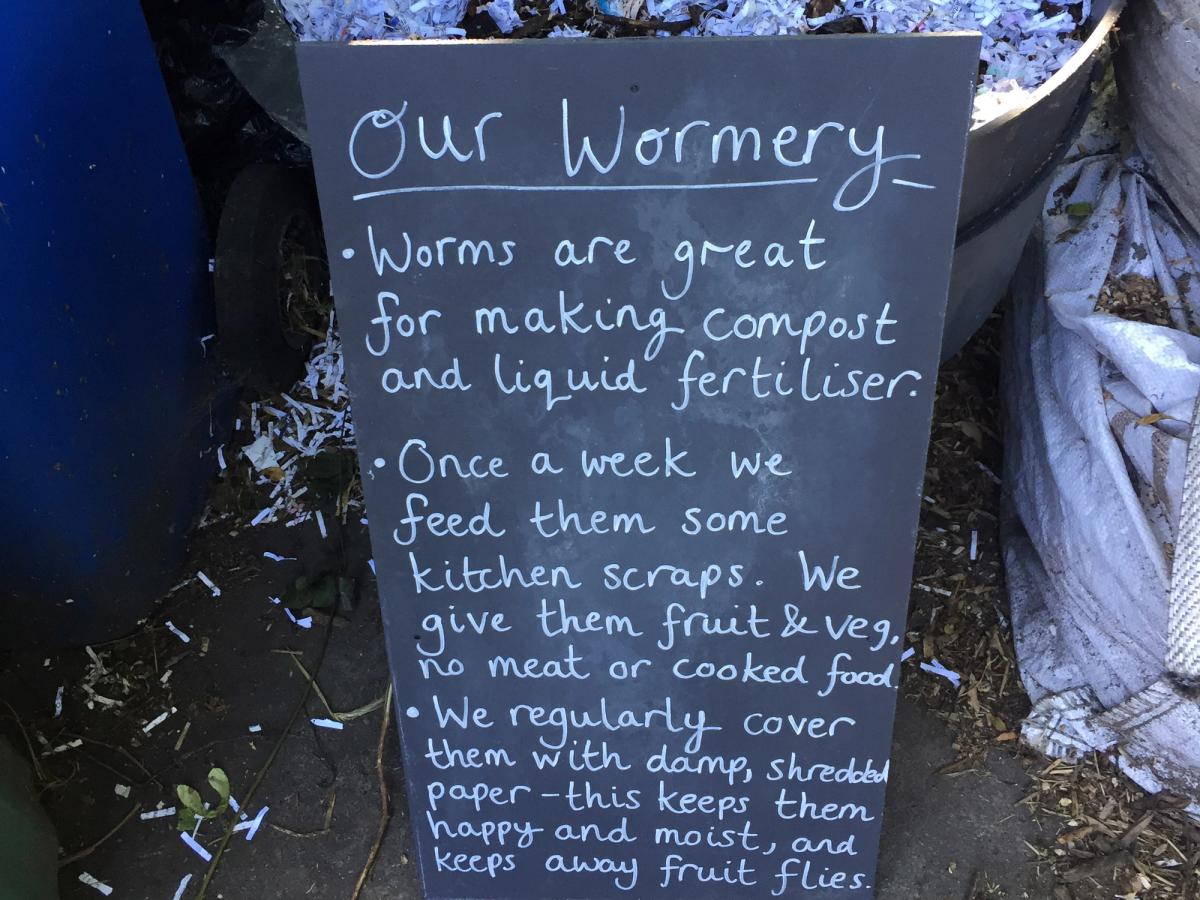 Our Wormery
• Worms are great
for making compost
and liquid fertiliser.
• Once a week we
feed them some
kitchen scraps. We
give them fruit & veg,
no meat or cooked food.
• We regularly cover
them with damp, shredded
paper – this keeps them
happy and moist, and
keeps away fruit flies.